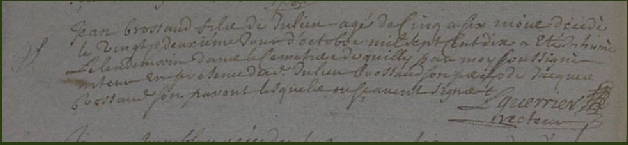 Jean brossaud fils de Julien agé de cinq a six mois décédé
le vingt deuxiéme Jour d'octobre mil sept cent dix a eté inhumé
Le lendemain dans le cemetiere de quilly par moy soussigné
recteur en presence de Julien brossaud son pere et de
brossaud son parent lesquels ne scavent signer
L guerrier
recteur